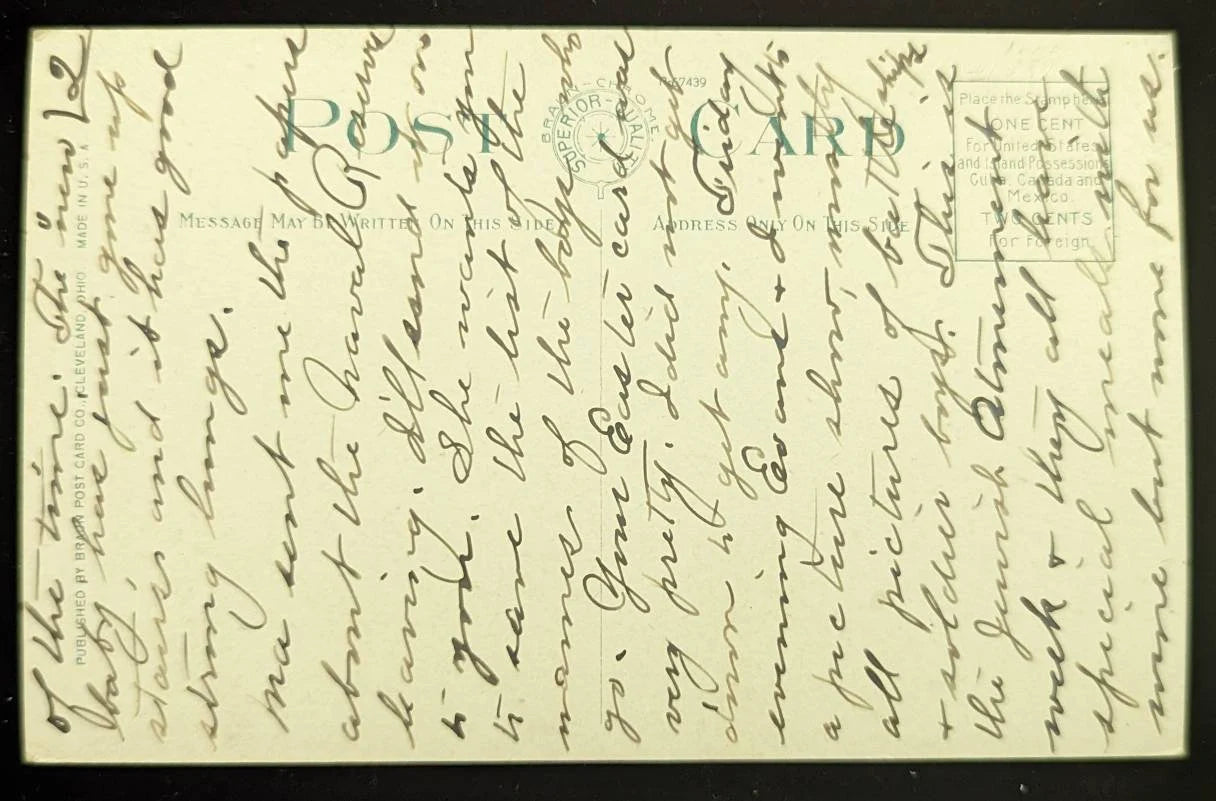 2
of the time. The "new
baby" has just gone up
stairs and it has good
strong lungs.
Ma sent me the paper
about the Naval R
leaving. I'll send it on
to you. She wants you
to save the list of the
names of the boys who
go. Your Easter card was
very pretty. I did not get
down to get any. Friday
evening Evans & I went to
a picture show, mostly
all pictures of battle ships
& soldier boys. This is
the Jewish Atonement
week & they all have
special meals with
wine but none for us.
POST CARD
BRAUN - CHROME
SUPERIOR-QUALITY
R-67439
MESSAGE MAY BE WRITTEN ON THIS SIDE
ADDRESS ONLY ON THIS SIDE
Place the Stamp here
ONE CENT
For United States
and Island Possessions
Cuba, Canada and
Mexico.
TWO CENTS
For Foreign
PUBLISHED BY BRAUN POST CARD CO., CLEVELAND, OHIO. MADE IN U.S.A